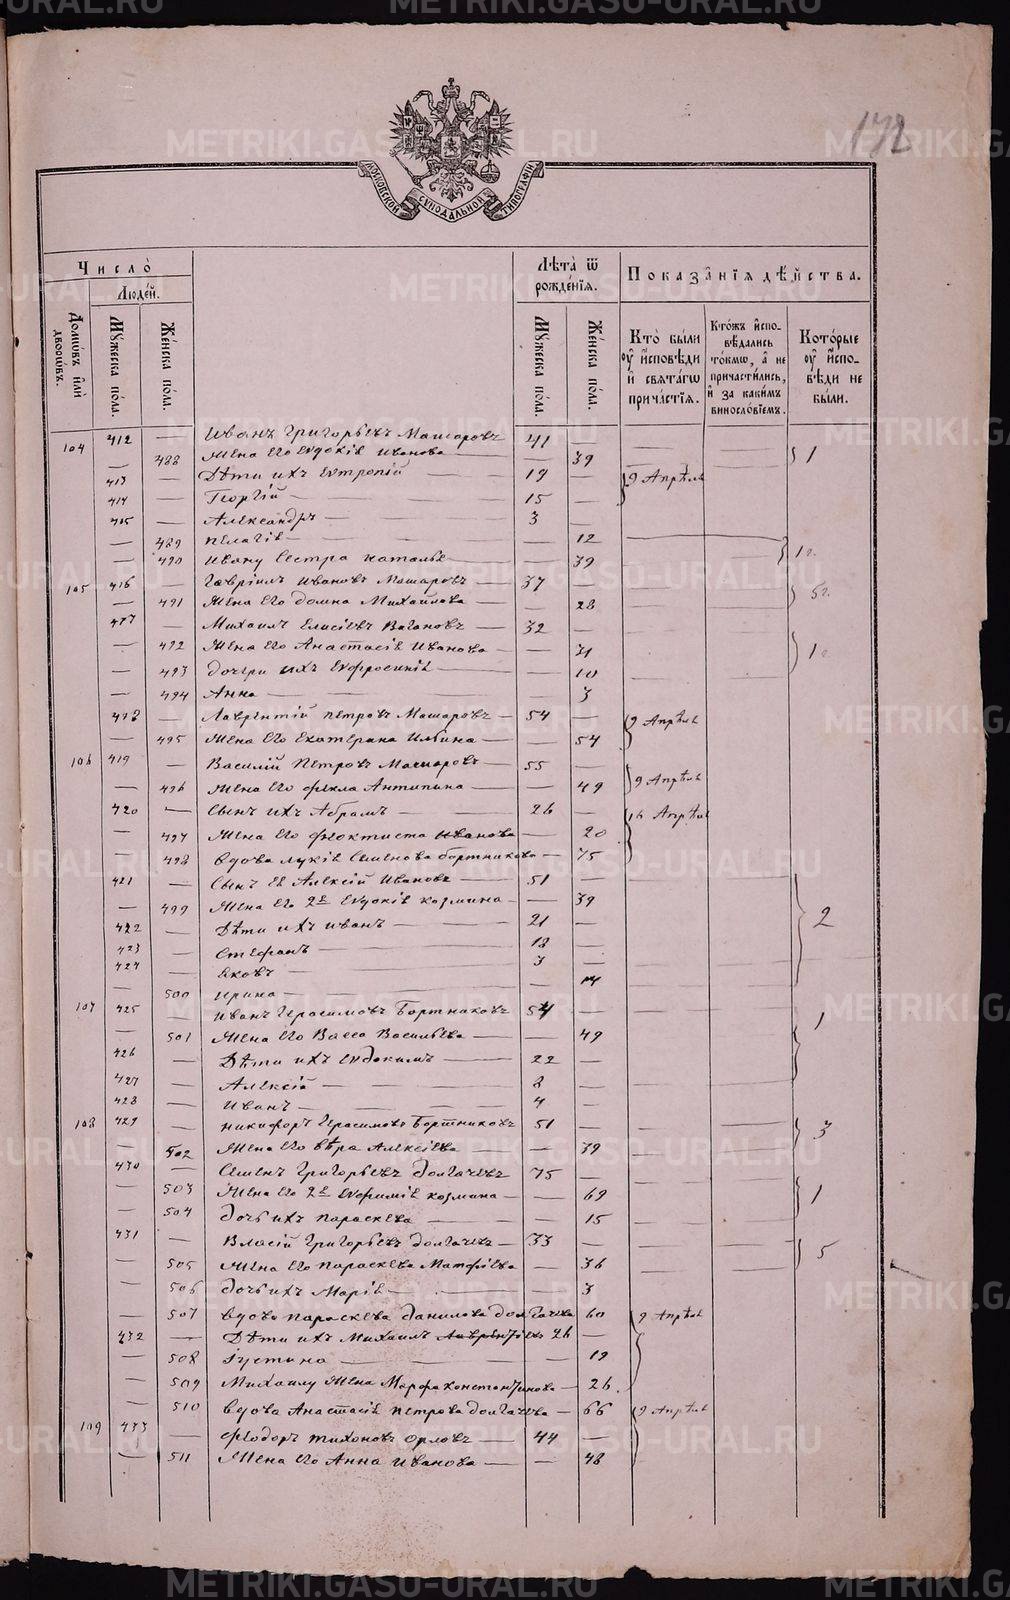 172
МОСКОВСКОЙ СѴНОДАЛЬНОЙ ТИПОГРАФІИ
Число
Людей.
Домѡвъ или дворѡвъ.
Мужеска пола.
Женска пола.
Лѣта ѿ рожденїя.
Мужеска пола.
Женска пола.
Показанїя дѣйства.
Кто были у исповѣди и святагѡ причастїя.
Ктожъ исповѣдались токмѡ, а не причастились, и за какимъ винословїемъ.
Которые у исповѣди не были.
104 412 — Иванъ Григорьевъ Машаровъ 41 —
— 488 Жена его Евдокія Иванова — 39 1
413 — Дѣти ихъ Евтропій 19 — 9 Апрѣля
414 — Георгій — 15 —
415 — Александръ — 3 —
— 489 Пелагія — — 12
— 490 Ивану сестра Наталья — 39
105 416 — Гавріилъ Ивановъ Машаровъ — 37 —
— 491 Жена его Домна Михайлова — — 28
417 — Михаилъ Елисѣевъ Вагановъ — 32 —
— 492 Жена его Анастасія Иванова — — 31
— 493 Дочери ихъ Евфросинія — — 10
— 494 Анна — — 3
418 — Лаврентій Петровъ Машаровъ — 54 — 9 Апрѣля
— 495 Жена его Екатерина Ильина — — 54
106 419 — Василій Петровъ Машаровъ — 55 —
— 496 Жена его Фекла Антипина — — 49 9 Апрѣля
420 — Сынъ ихъ Абрамъ — 26 — 16 Апрѣля
— 497 Жена его Феоктиста Иванова — 20
— 498 Вдова Лукія Семенова Бортникова — 75
421 — Сынъ ея Алексій Ивановъ — 51 —
— 499 Жена его 2я Евдокія Козмина — — 39
422 — Дѣти ихъ Иванъ — 21 — 2
423 — Стефанъ — 18 —
424 — Яковъ — 3 —
— 500 Ирина — — 14
107 425 — Иванъ Герасимовъ Бортниковъ 54 — 1
— 501 Жена его Васса Васильева — — 49
426 — Дѣти ихъ Евдокимъ — 22 —
427 — Алексій — 8 —
428 — Иванъ — 4 —
108 429 — Никифоръ Герасимовъ Бортниковъ 51 — 3
— 502 Жена его Вѣра Алексіева — — 39
430 — Семенъ Григорьевъ Долгачевъ 75 —
— 503 Жена его 2я Евфимія Козмина — — 69 1
— 504 Дочь ихъ Параскева — — 15
431 — Власій Григорьевъ Долгачевъ — 33 — 5
— 505 Жена его Параскева Матфіева — 36
— 506 Дочь ихъ Марія — — 3
— 507 Вдова Параскева Данилова Долгачева 60 9 Апрѣля
432 — Дѣти ихъ Михаилъ Лаврентіевъ 26 —
— 508 Іустина — — 19
— 509 Михаилу жена Марфа Константинова — 26
— 510 Вдова Анастасія Петрова Долгачева — 66 9 Апрѣля
109 433 — Феодоръ Тихоновъ Орловъ — 44 —
— 511 Жена его Анна Иванова — — 48
METRIKI.GASO-URAL.RU